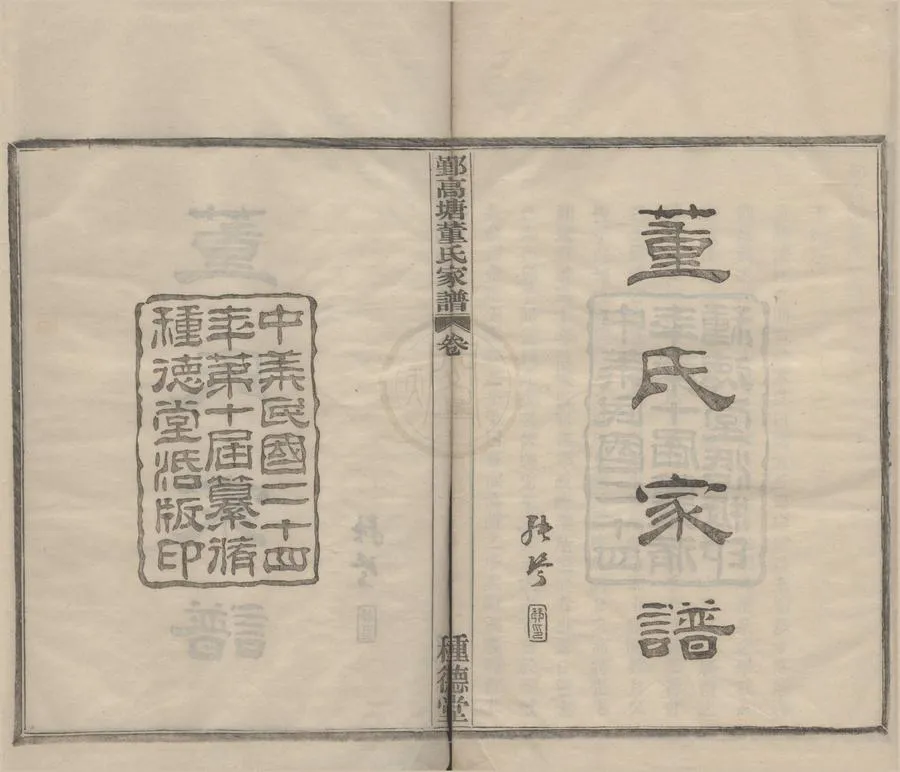 董氏家譜
鄞高塘董氏家譜 卷
種德堂
中華民國二十四
年第十屆纂脩
種德堂活版印